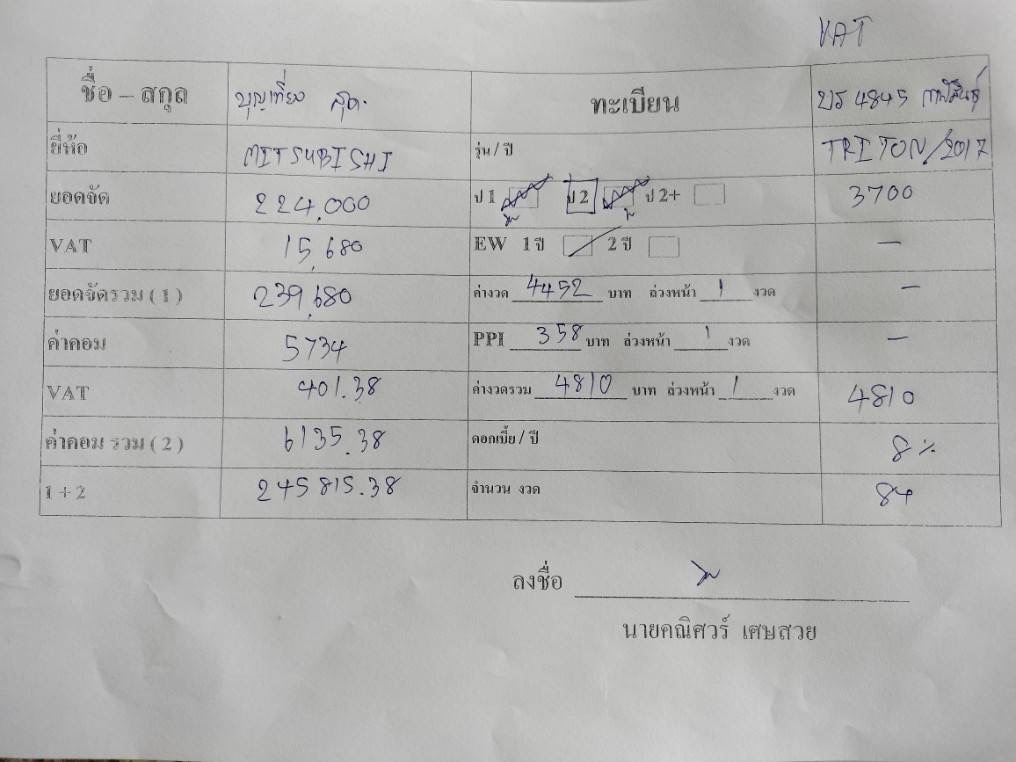 VAT
ชื่อ – สกุล บุญเที่ยง สุด. ทะเบียน บร 4845 กาฬสินธุ์
ยี่ห้อ MITSUBISHI รุ่น / ปี TRITON/2017
ยอดจัด 224,000 ป 1 ป 2 ป 2+ 3700
VAT 15,680 EW 1 ปี 2 ปี —
ยอดจัดรวม ( 1 ) 239,680 ค่างวด 4452 บาท ล่วงหน้า 1 งวด —
ค่าคอม 5734 PPI 358 บาท ล่วงหน้า 1 งวด —
VAT 401.38 ค่างวดรวม 4810 บาท ล่วงหน้า 1 งวด 4810
ค่าคอม รวม ( 2 ) 6135.38 ดอกเบี้ย / ปี 8 %
1 + 2 245815.38 จำนวน งวด 84
ลงชื่อ
นายคณิศวร์ เศษสวย